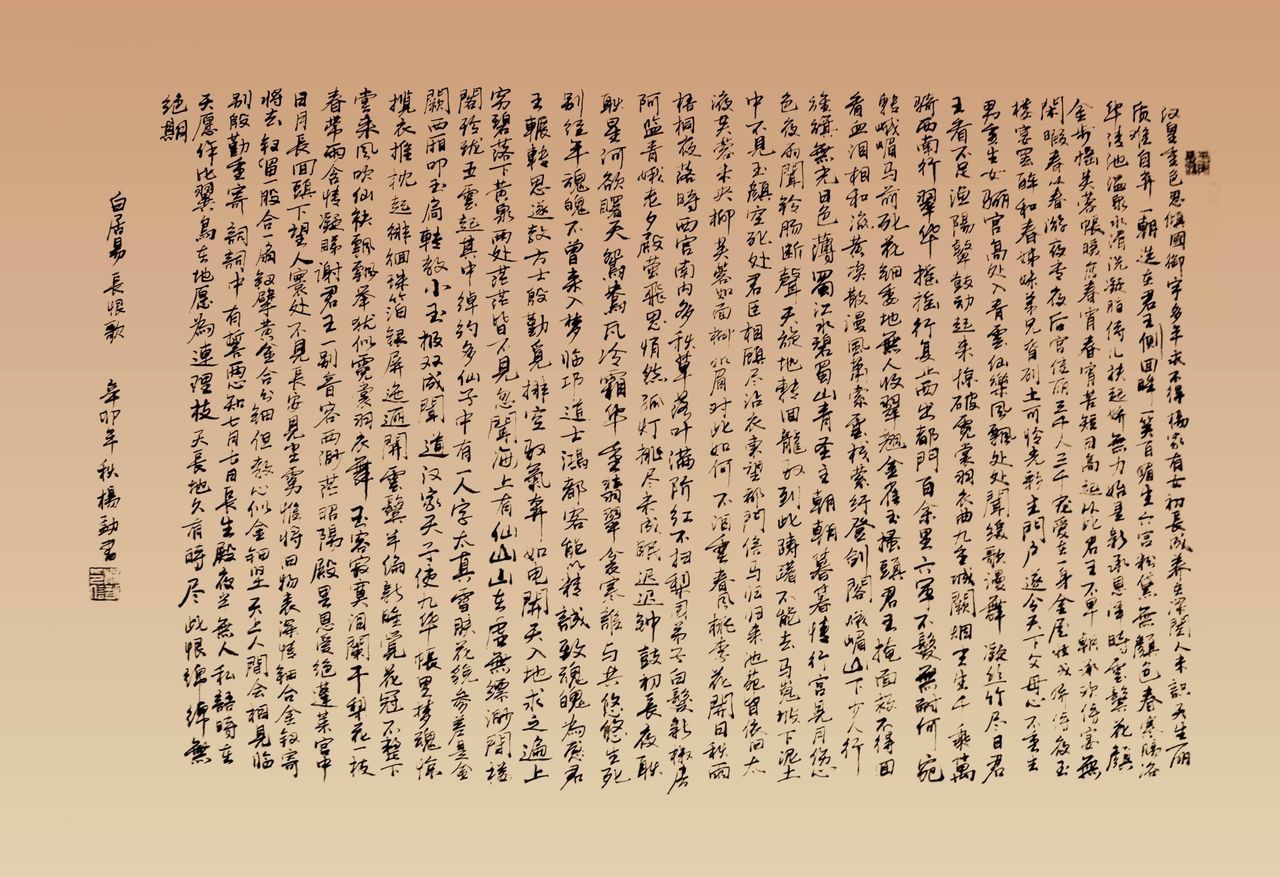 汉皇重色思倾國御宇多年求不得楊家有女初長成养在深閨人未識天生丽
质难自弃一朝选在君王侧回眸一笑百媚生六宫粉黛無颜色春寒赐浴
华清池温泉水滑洗凝脂侍儿扶起娇無力始是新承恩泽時雲鬓花颜
金步摇芙蓉帳暖度春宵春宵苦短日高起从此君王不早朝承欢侍宴無
閑暇春从春游夜专夜后宫佳丽三千人三千宠爱在一身金屋妆成侨侍夜玉
楼宴罢醉和春姊妹弟兄皆列土可怜光彩生門户遂令天下父母心不重生
男重生女骊宫高处入青雲仙樂風飄处处聞缓歌漫舞凝丝竹尽日君
王看不足渔陽鼙鼓動起来惊破霓裳羽衣曲九重城闕烟尘生千乘萬
骑西南行翠华摇摇行复止西出都門百余里六军不發無奈何宛
转蛾嵋马前死花钿委地無人收翠翘金雀玉搔頭君王掩面救不得回
看血泪相和流黄埃散漫風萧索雲栈萦纡登剑阁峨嵋山下少人行
旌旗無光日色薄蜀江水碧蜀山青圣主朝朝暮暮情行宫見月伤心
色夜雨聞铃肠断聲天旋地轉回龍馭到此踌躇不能去马嵬坡下泥土
中不見玉颜空死处君臣相顾尽沾衣東望都門信马归归来池苑皆依旧太
液芙蓉未央柳芙蓉如面柳如眉对此如何不泪垂春風桃李花開日秋雨
梧桐夜落時西宫南内多秋草落叶满阶红不扫梨园弟子白髮新椒房
阿监青娥老夕殿萤飛思悄然孤灯挑尽未成眠迟迟钟鼓初長夜耿
耿星河欲曙天鸳鸯瓦冷霜华重翡翠衾寒誰与共悠悠生死
别经年魂魄不曾来入梦临邛道士鴻都客能以精誠致魂魄为感君
王輾轉思遂教方士殷勤覓排空馭氣奔如电開天入地求之遍上
穷碧落下黄泉两处茫茫皆不見忽聞海上有仙山山在虚無缥渺間楼
阁玲珑五雲起其中绰约多仙子中有一人字太真雪肤花貌参差是金
闕西厢叩玉扃轉教小玉报双成聞道汉家天子使九华帳里梦魂惊
揽衣推枕起徘徊珠箔银屏迤逦開雲鬓半偏新睡覚花冠不整下
堂来風吹仙袂飄飄举犹似霓裳羽衣舞玉容寂寞泪闌干梨花一枝
春带雨含情凝睇谢君王一别音容两渺茫昭陽殿里恩爱绝蓬莱宫中
日月長回頭下望人寰处不見長安見尘雾惟将旧物表深情钿合金钗寄
将去钗留一股合一扇钗擘黄金合分钿但教心似金钿坚天上人間会相見临
别殷勤重寄詞詞中有誓两心知七月七日長生殿夜半無人私語時在
天愿作比翼鸟在地愿為連理枝天長地久有時尽此恨綿綿無
绝期
白居易長恨歌 辛卯年秋楊勁君